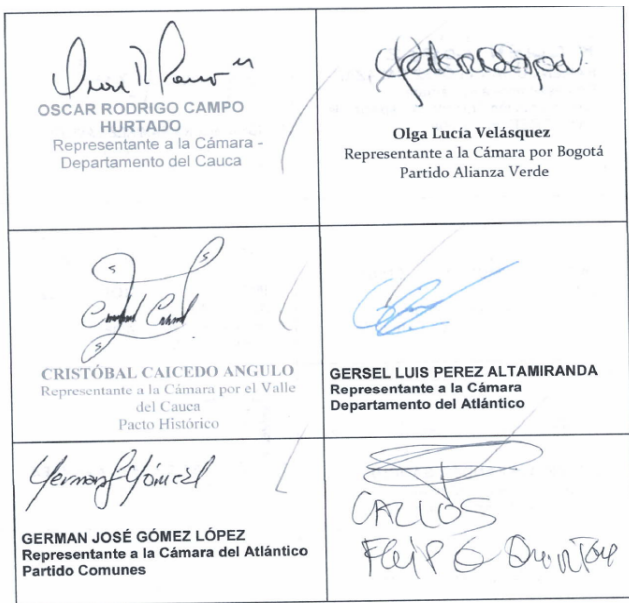 OSCAR RODRIGO CAMPO
HURTADO
Representante a la Cámara -
Departamento del Cauca
Olga Lucía Velásquez
Representante a la Cámara por Bogotá
Partido Alianza Verde
CRISTÓBAL CAICEDO ANGULO
Representante a la Cámara por el Valle
del Cauca
Pacto Histórico
GERSEL LUIS PEREZ ALTAMIRANDA
Representante a la Cámara
Departamento del Atlántico
GERMAN JOSÉ GÓMEZ LÓPEZ
Representante a la Cámara del Atlántico
Partido Comunes
CARLOS